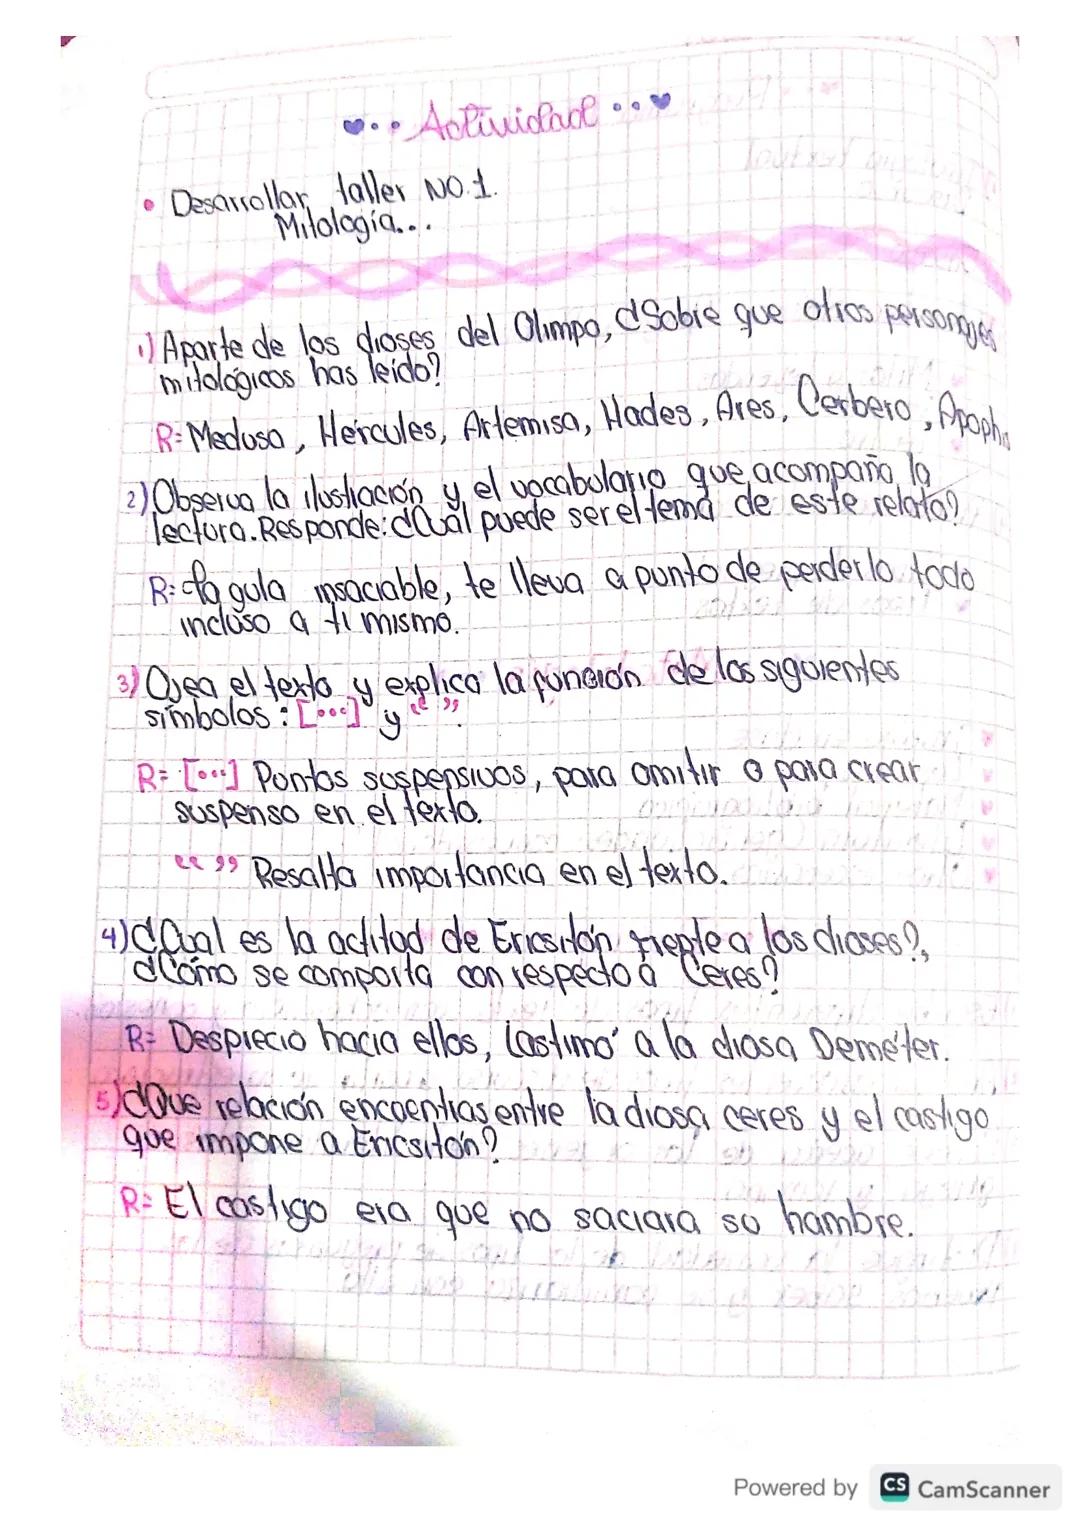 Actividad
• Desarrollar taller No.1.
Mitología...
1) Aparte de los dioses del Olimpo, ¿Sobre que otros personajes
mitológicos has leído?
R= Medusa, Hércules, Artemisa, Hades, Ares, Cerbero, Apophis
2) Observa la ilustración y el vocabulario que acompaña la
lectura. Responde: ¿Cuál puede ser el tema de este relato?
R= La gula insaciable, te lleva a punto de perderlo todo
incluso a ti mismo.
3) Ojea el texto y explica la función de los siguientes
símbolos: [...] y “ ”.
R= [...] Puntos suspensivos, para omitir o para crear
suspenso en el texto.
“ ” Resalta importancia en el texto.
4) ¿Cual es la actitud de Ericsitón frente a los dioses?,
¿Cómo se comporta con respecto a Ceres?
R= Desprecio hacia ellos, Lastimó a la diosa Deméter.
5) ¿Que relación encuentras entre la diosa ceres y el castigo
que impone a Ericsitón?
R= El castigo era que no saciara su hambre.
Powered by CS CamScanner